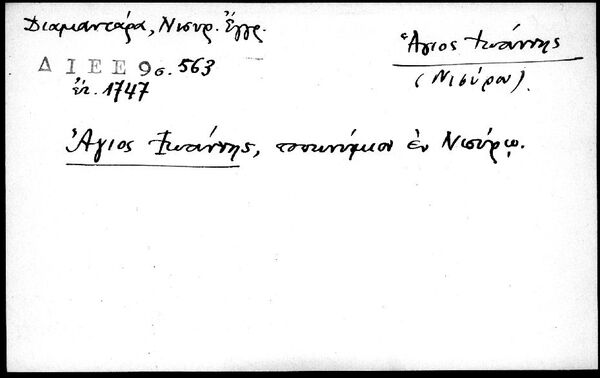 Διαμαντάρα, Νισυρ. Ἔγγρ.
Δ Ι Ε Ε 9 σ. 563
ἔτ. 1747
Ἅγιος Ἰωάννης
(Νισύρου).
Ἅγιος Ἰωάννης, τοπωνύμιον ἐν Νισύρῳ.